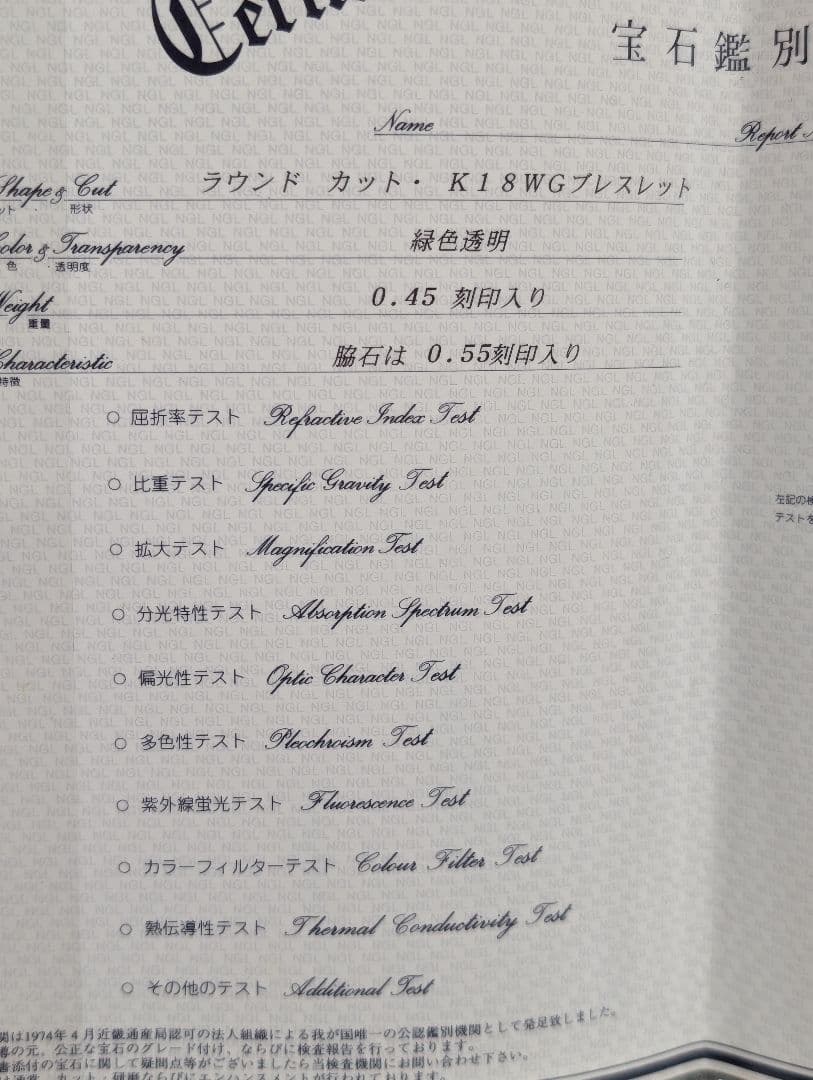 宝石鑑別
Name
Report
Shape & Cut ラウンド カット・ K18WGブレスレット
形状
Color & Transparency 緑色透明
色 ・透明度
Weight 0.45 刻印入り
重量
Characteristic 脇石は 0.55刻印入り
特徴
○ 屈折率テスト Refractive Index Test
○ 比重テスト Specific Gravity Test
左記の検
テストを
○ 拡大テスト Magnification Test
○ 分光特性テスト Absorption Spectrum Test
○ 偏光性テスト Optic Character Test
○ 多色性テスト Pleochroism Test
○ 紫外線蛍光テスト Fluorescence Test
○ カラーフィルターテスト Colour Filter Test
○ 熱伝導性テスト Thermal Conductivity Test
○ その他のテスト Additional Test
関は1974年4月近畿通産局認可の法人組織による我が国唯一の公認鑑別機関として発足致しました。
の元、公正な宝石のグレード付け、ならびに検査報告を行っております。
書添付の宝石に関して疑問点等がございましたら当検査機関にお問い合わせ下さい。
カット・研磨ならびにエンハンスメントが行われております。